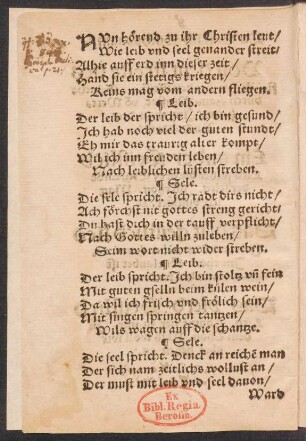 NUn hörend zu ihr Christen leut/
Wie leib vnd seel genander streit/
Alhie auff erd inn diser zeit/
Hand sie ein stetigs kriegen/
Keins mag vom andern fliegen.
¶ Leib.
Der leib der spricht/ ich bin gesund/
Ich hab noch viel der guten stund/
Eh mir das traurig alter kompt/
Wil ich inn freuden leben/
Nach leiblichen lüsten streben.
¶ Sele.
Die sele spricht. Ich radt dirs nicht/
Ach förchst nit gottes streng gericht/
Du hast dich in der tauff verpflicht/
Nach Gottes willn zuleben/
Seim wort nicht wider streben.
¶ Leib.
Der leib spricht. Ich bin stolz vñ fein
Mit guten gselln beim külen wein/
Da wil ich frisch vnd frölich sein/
Mit singen springen tantzen/
Wils wagen auff die schantze.
¶ Sele.
Die seel spricht. Denck an reichē man
Der sich nam zeitlichs wollust an/
Der must mit leib vnd seel dauon/
Ward
Ex
Bibl. Regia
Berolin.